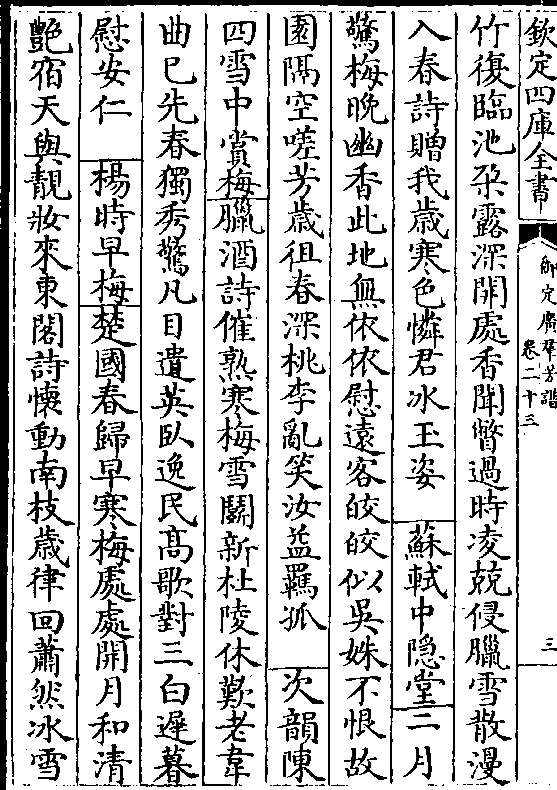 欽定四庫全書
御定廣羣芳譜
卷二十三
三
竹復臨池朶露深開處香聞瞥過時凌兢侵臘雪散漫
入春詩贈我歲寒色憐君冰玉姿　蘇軾中隠堂二月
驚梅晚幽香此地無依依慰遠客皎皎似吳姝不恨故
園隔空嗟芳歲徂春深桃李亂笑汝益羈孤　次韻陳
四雪中賞梅臘酒詩催熟寒梅雪鬭新杜陵休歎老韋
曲已先春獨秀驚凡目遺英臥逸民髙歌對三白遲暮
慰安仁　楊時早梅楚國春歸早寒梅處處開月和清
艷宿天與靚妝來東閣詩懷動南枝歲律回蕭然冰雪